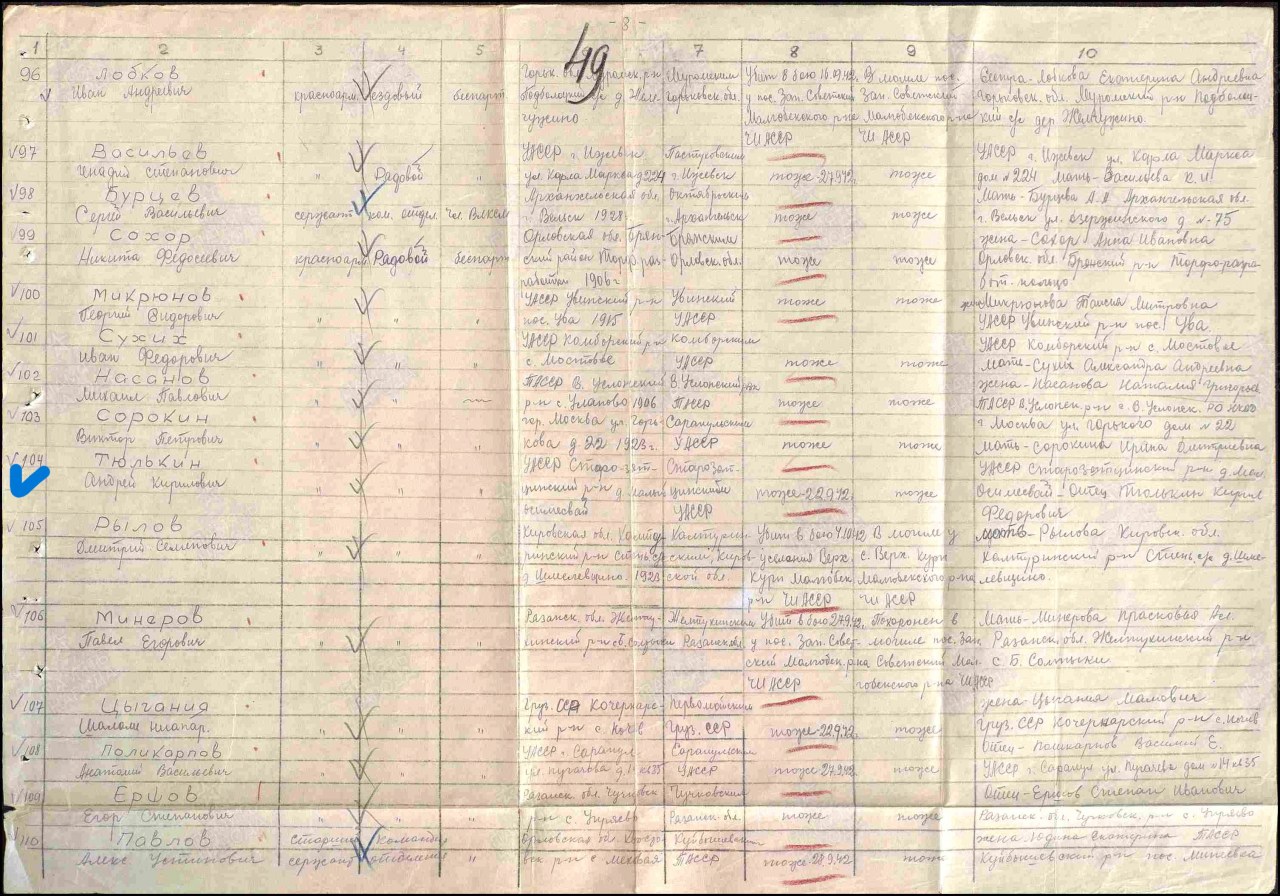 - 3 -
49
1 2 3 4 5 7 8 9 10
96 Лобков Горьк. обл. Муромск. р-н Муромским Убит в бою 16.09.42. В могиле пос. Сестра-Лобкова Екатерина Андреевна
Иван Андреевич красноарм. ездовый беспарт д. Жем- Горьковск. обл. у пос. Зап. Советский Зап. Советский Горьковск. обл. Муромский р-н Подболец-
чужино Малгобекского р-на Малгобекского р-на кий с/с дер Жемчужино.
ЧИАССР ЧИАССР
97 Васильев УАССР г. Ижевск Пастуховским УАССР г. Ижевск ул. Карла Маркса
Генадий Степанович " Рядовой " ул. Карла Маркса д 224 г. Ижевск тоже-27.9.42. тоже дом № 224 Мать-Васильева К. И.
98 Бурцев Архангельская обл. Октябрьским Мать-Бурцева А.Я Архангельская обл.
Сергей Васильевич сержант ком. отдел. чл. ВЛКСМ г. Вельск 1928 г. Архангельск тоже тоже г. Вельск ул. Дзержинского д №-75
99 Сохор Орловская обл. Брян- Брянским жена-Сохор Анна Ивановна
Никита Федосеевич красноарм. Рядовой беспарт ский район Торфо раз- Орловск. обл. тоже тоже Орловск. обл. Брянский р-н Торфо-разра-
работки 1906 г. бот. кольцо
100 Микрюнов УАССР Увинский р-н Увинский тоже тоже Микрюнова Таисия Митровна
Георгий Сидорович " " " пос. Ува 1915 УАССР УАССР Увинский р-н пос. Ува.
101 Сухих УАССР Камборский р-н Камборским УАССР Камборский р-н с. Мостовое
Иван Федорович " " " с. Мостовое УАССР тоже тоже Мать-Сухих Александра Андреевна
102 Насанов ТАССР В. Услонский В. Услонский жена-Насанова Наталия Григорье
Михаил Павлович " " р-н с. Уланово 1906 ТАССР тоже тоже ТАССР В. Услонск. р-н с. В. Услонск. РО НКВД
103 Сорокин гор. Москва ул. Горь- Сарапульским г Москва ул. Горького дом № 22
Виктор Петрович " " " кова д. 22 1923 г. УАССР тоже тоже Мать-Сорокина Ирина Дмитриевна
104 Тюлькин УАССР Старо-зят- Старозят- УАССР Старозятцинский р-н д. Мал.
Андрей Кирилович " " " цинский р-н д. Малый цинским тоже-22.9.42. тоже Осимсевай-Отец Тюлькин Кирил
осимсевай УАССР Федорович
105 Рылов Кировская обл. Халту- Халтурин- Убит в бою 4.10.42 В могиле у мать-Рылова Кировск. обл.
Дмитрий Семенович " " " ринский р-н ским, Киров- с. Верх. Курп Халтуринский р-н с/с д. Шеме-
1923 ской обл. Курп Малгобек. Малгобекского р-на левщино.
р-н ЧИАССР ЧИАССР
106 Минеров Рязанск. обл. Желту- Желтухинским Убит в бою 27.9.42. Похоронен в Мать-Минерова Прасковья
Павел Егорович " " " хинский р-н Рязанск. обл. у пос. Зап. Совет- могиле пос. Зап. Рязанск. обл. Желтухинский р-н
ский Малгобек. р-на Советский Мал- с. Б. Солтыки
ЧИАССР гобекского р-на ЧИАССР
107 Цыгания Груз. ССР Первомайским жена-Цыгания
Шалам " " " кий р-н Груз. ССР тоже-22.9.42. тоже Груз. ССР р-н
108 Поликарпов УАССР г. Сарапул. Сарапульским Отец-Поликарпов Василий Е.
Анатолий Васильевич " " " ул. Пугачева д. 14 кв 35 УАССР тоже-24.9.42. тоже УАССР г. Сарапул ул. Пугачева дом № 14 кв 35
109 Ершов Рязанск. обл. Чучковск Чучковским Отец-Ершов Степан Иванович
Егор Степанович " " " р-н с. Унгяево Рязанск. обл. тоже тоже Рязанск. обл. Чучковск. р-н с. Унгяево
110 Павлов Старший Командир Орловская обл. Куйбышевским жена- Екатерина ТАССР
Алекс Устинович сержант отделения " р-н с. Меховая ТАССР тоже-28.9.42 тоже Куйбышевский р-н пос.